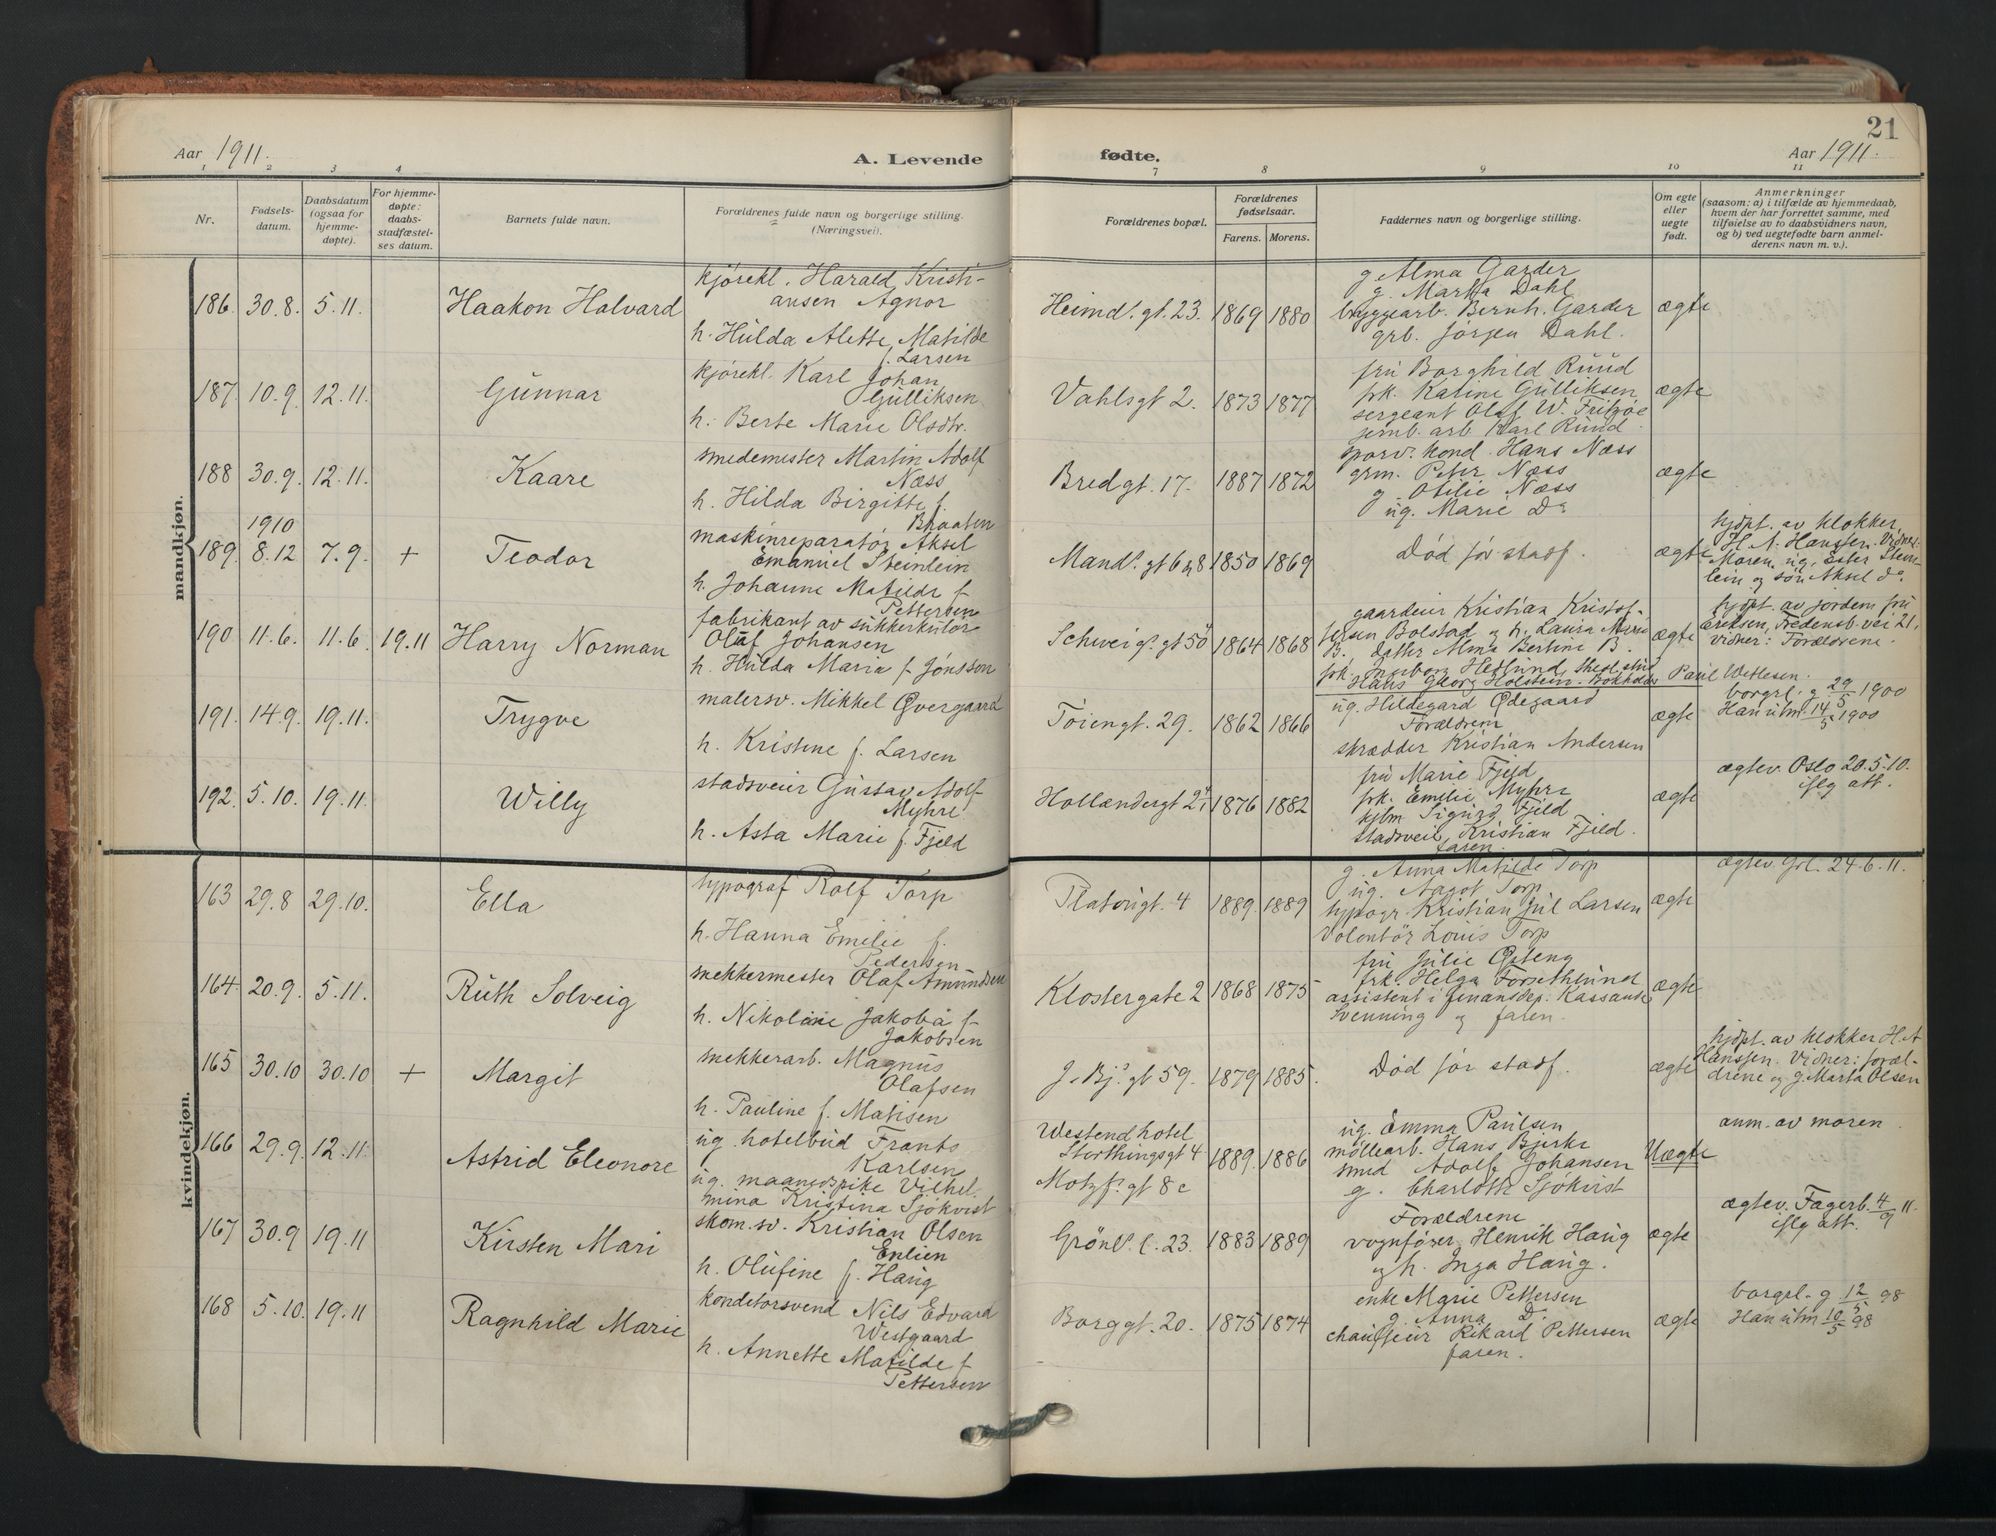 Aar 1911.
A. Levende
fødte.
21
Aar 1911.
1 2 3 4
7 8 9 10 11
Nr.
Fødsels-
datum.
Daabsdatum
(ogsaa for
hjemme-
døpte).
For hjemme-
døpte:
daabs-
stadfæstel-
ses datum.
Barnets fulde navn.
Forældrenes fulde navn og borgerlige stilling.
(Næringsvei).
Forældrenes bopæl.
Forældrenes
fødselsaar.
Farens. Morens.
Faddernes navn og borgerlige stilling.
Om egte
eller
uegte
født.
Anmerkninger
(saasom: a) i tilfælde av hjemmedaab,
hvem der har forrettet samme, med
tilføielse av to daabsvidners navn,
og b) ved uegtefødte barn anmel-
derens navn m. v.).
mandkjøn.
186. 30.8. 5.11. Haakon Halvard
kjørekl. Harald Kristi-
ansen Agnor
h. Hulda Alette Matilde
f. Larsen
Heimds. gt. 23. 1869 1880
g. Alma Garder
g. Marta Dahl
byggearb. Bernh. Garder
grb. Jørgen Dahl.
ægte
187. 10.9. 12.11. Gunnar
kjørekl. Karl Johan
Gulliksen
h. Berte Marie Olsdtr.
Vahlsgt 2. 1873 1877
fru Borghild Ruud
frk. Katine Gulliksen
sergeant Olaf W. Fritzøe
jernb. arb. Karl Ruud
ægte
188 30.9. 12.11. Kaare
smedemester Martin Adolf
Næss
h. Hilda Birgitte f.
Braaten
Bredgt. 17. 1887 1872
sporv. kond. Hans Næss
grm. Peter Næss
g. Otilie Næss
ug. Marie Do
ægte
1910
189. 8.12 7.9. + Teodor
maskinreparatør Aksel
Emanuel Steinlein
h. Johanne Matilde f
Pettersen
Mands. gt 6 og 8 1850 1869
Død før stadf.
ægte
hjdpt. av klokker
H. A. Hanssen. Vidner:
Moren, ug. Ester Stein-
lein og søn Aksel do.
190 11.6. 11.6. 19.11 Harry Norman
fabrikant av sukkerkulør
Olaf Johansen
h. Hulda Maria f. Jónsson
Schweigs. gt 50 1864 1868
gaardeier Kristian Kristof-
fersen Bolstad og h. Laura Marie
B. datter Alma Bertine B.
frk. Ingeborg Hedlund,
Hans Georg Holstein. Bokholder Paul Wetlesen.
ægte
hjdpt. av jordem. fru
Eriksen, Fredensb. vei 21,
vidner: Forældrene.
191. 14.9. 19.11. Trygve
malersv. Mikkel Øvergaard
h. Kristine f. Larsen
Tøiengt. 29. 1862 1866
ug. Hildegard Ødegaard
Forældrene
skrædder Kristian Andersen
ægte
borgrl. g 29/5 1900
Han utm 14/5 1900
192. 5.10. 19.11. Willy
stadsveier Gustav Adolf
Myhre.
h. Asta Marie f. Fjeld
Hollændergt 21 1876 1882
fru Marie Fjeld
frk. Emilie Myhre
kjlm Sigurd Fjeld
stadsveier Kristian Fjeld.
faren.
ægte
ægtev. Oslo 20.5.10.
iflg att.
kvindekjøn.
163 29.8 29.10. Ella
typograf Rolf Torp
h. Hanna Emilie f.
Pedersen
Platougt. 4 1889. 1889
g. Anna Matilde Torp
ug. Aagot Torp
typogr. Kristian Jul Larsen
Volontør Louis Torp
ægte
ægtev. Grl. 24.6.11.
164. 20.9. 5.11. Ruth Solveig
mekkermester Olaf Amundsen
h. Nikoline Jakoba f.
Jakobsen
Klostergate 2 1868 1875
fru Julie Østeng
frk. Helga Forsethlund
assistent i finansdep. Kassansk
Svenning og faren.
ægte
165 30.10 30.10 + Margit
mekkerarb. Magnus
Olafsen
h. Pauline f. Matisen
J. Bjs. gt 59. 1879 1885.
Død før stadf.
ægte
hjdpt. av klokker H. A
Hanssen. Vidner: foræl-
drene og g. Marta Olsen
166 29.9. 12.11. Astrid Eleonore
ug. hotelbud Frants
Karlsen
ug. maanedspike Vilhel-
mina Kristina Sjökvist
Westend hotel
Storthingsgt 4
Motzfs. gt 8c
1889. 1886
ug. Emma Paulsen
møllearb. Hans Bjerke
smed Adolf Johansen
g. Charlotte Sjökvist
Uægte
anm. av moren.
167 30.9 19.11 Kirsten Mari
skom. sv. Kristian Olsen
Enlien
h. Olufine f. Haug
Grönl. l. 23. 1883 1889
Forældrene
vognfører Henrik Haug
og h. Inga Haug.
ægte
ægtev. Fagerb. 4/9 11.
iflg att.
168 5.10. 19.11 Ragnhild Marie
konditorsvend Nils Edvard
Westgaard
h. Annette Matilde f
Pettersen
Borggt. 20. 1875 1874
enke Marie Pettersen
g. Anna Do.
chauffeur Rikard Pettersen
faren.
ægte
borgrl. g 12/5 98
Han utm 10/5 98